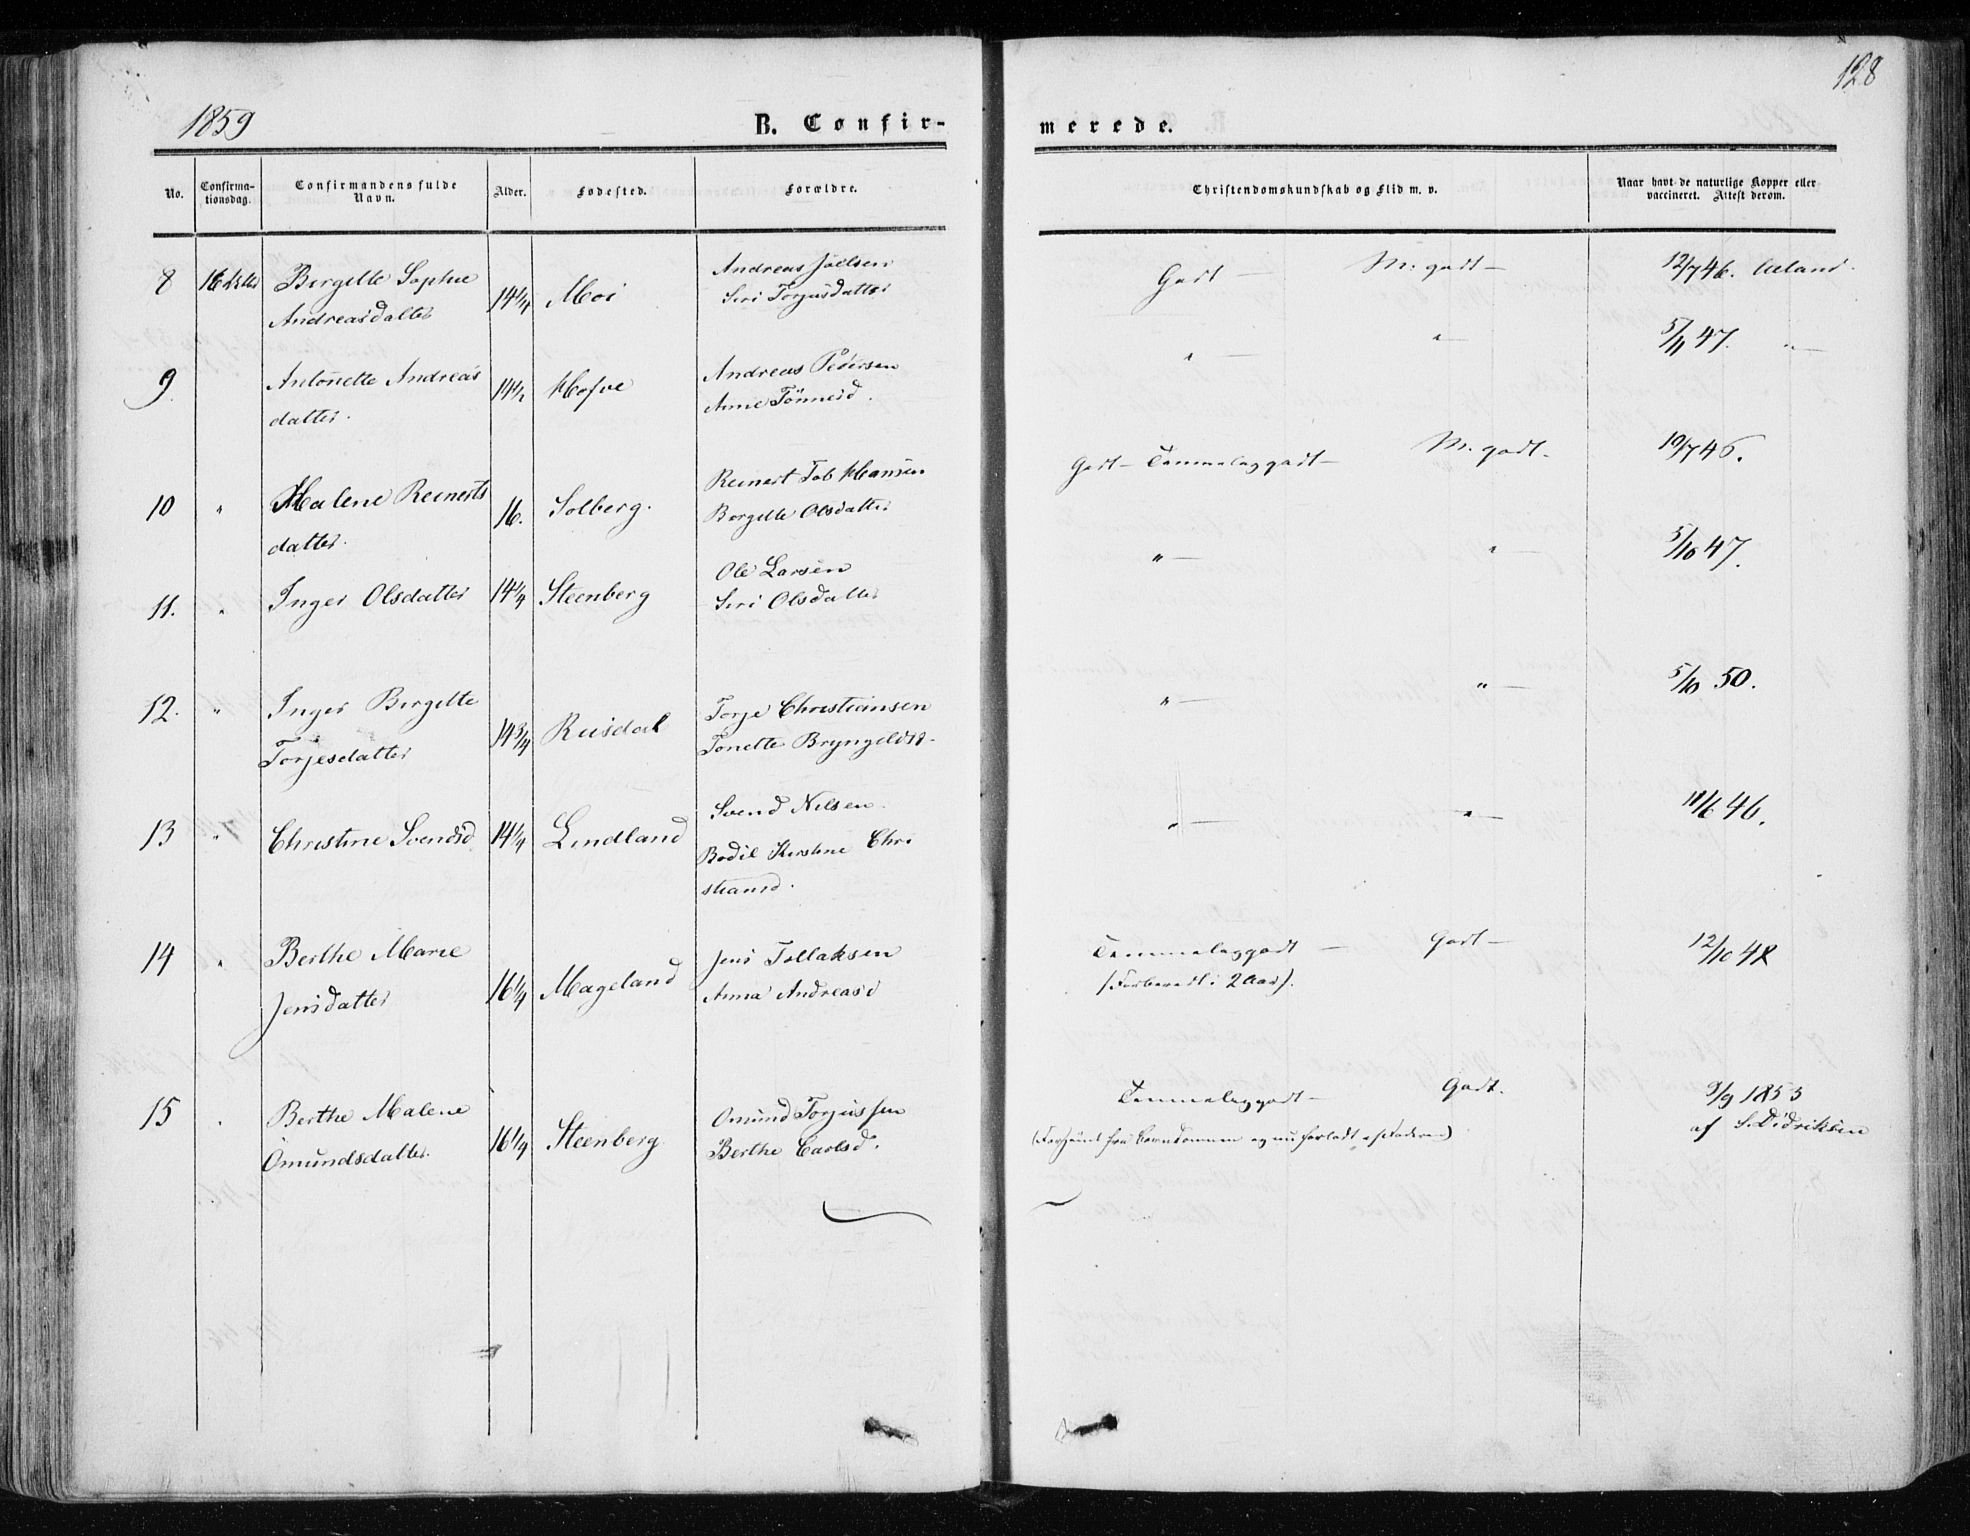 1859
B. Confir-
merede.
128
No.
Confirma-
tionsdag.
Confirmandens fulde
Navn.
Alder.
Fødested.
Forældre.
Christendomskundskab og Flid m. v.
Naar havt de naturlige Kopper eller
vaccineret. Attest derom.
8 Birgitte Sophie 14 1/4 Moi Andreas Joelsen Godt — M. godt — 12/7 46. Ueland.
Andreasdatter Siri Torjusdatter
9 Antonette Andreas 14 1/2 Hofve Andreas Pedersen " — " — 5/11 47. " —
datter. Anne Tönnesd.
10 " Malene Reinerts 16. Solberg. Reinert Tob Hansen Godt — Temmelig godt — M. godt. 10/7 46.
datter. Birgitte Olsdatter
11. " Inger Olsdatter 14 1/4 Steenberg Ole Larsen " — " — 5/10 47.
Siri Olsdatter
12. " Inger Birgitte 14 3/4 Reisdal Torje Christiansen " — " — 5/10 50.
Torjesdatter Tonette Bryngelds.
13 " Christine Svendsd 14 1/4 Lindland Svend Nilsen. " — " — 11/6 46.
Bodil Kirstine Chri
stiansd.
14 " Berthe Marie 16 1/4 Mageland Jens Tollaksen Temmelig godt — Godt — 12/10 48
Jensdatter Anna Andreasd (Forberedt i 2 Aar).
15 Berthe Malene 16 1/4 Steenberg Omund Torjussen Temmelig godt — Godt. 9/9 1853
Omundsdatter. Berthe Carlsd. (Forsömt fra Barndommen og nu forladt af Faderen) af S. Didriksen